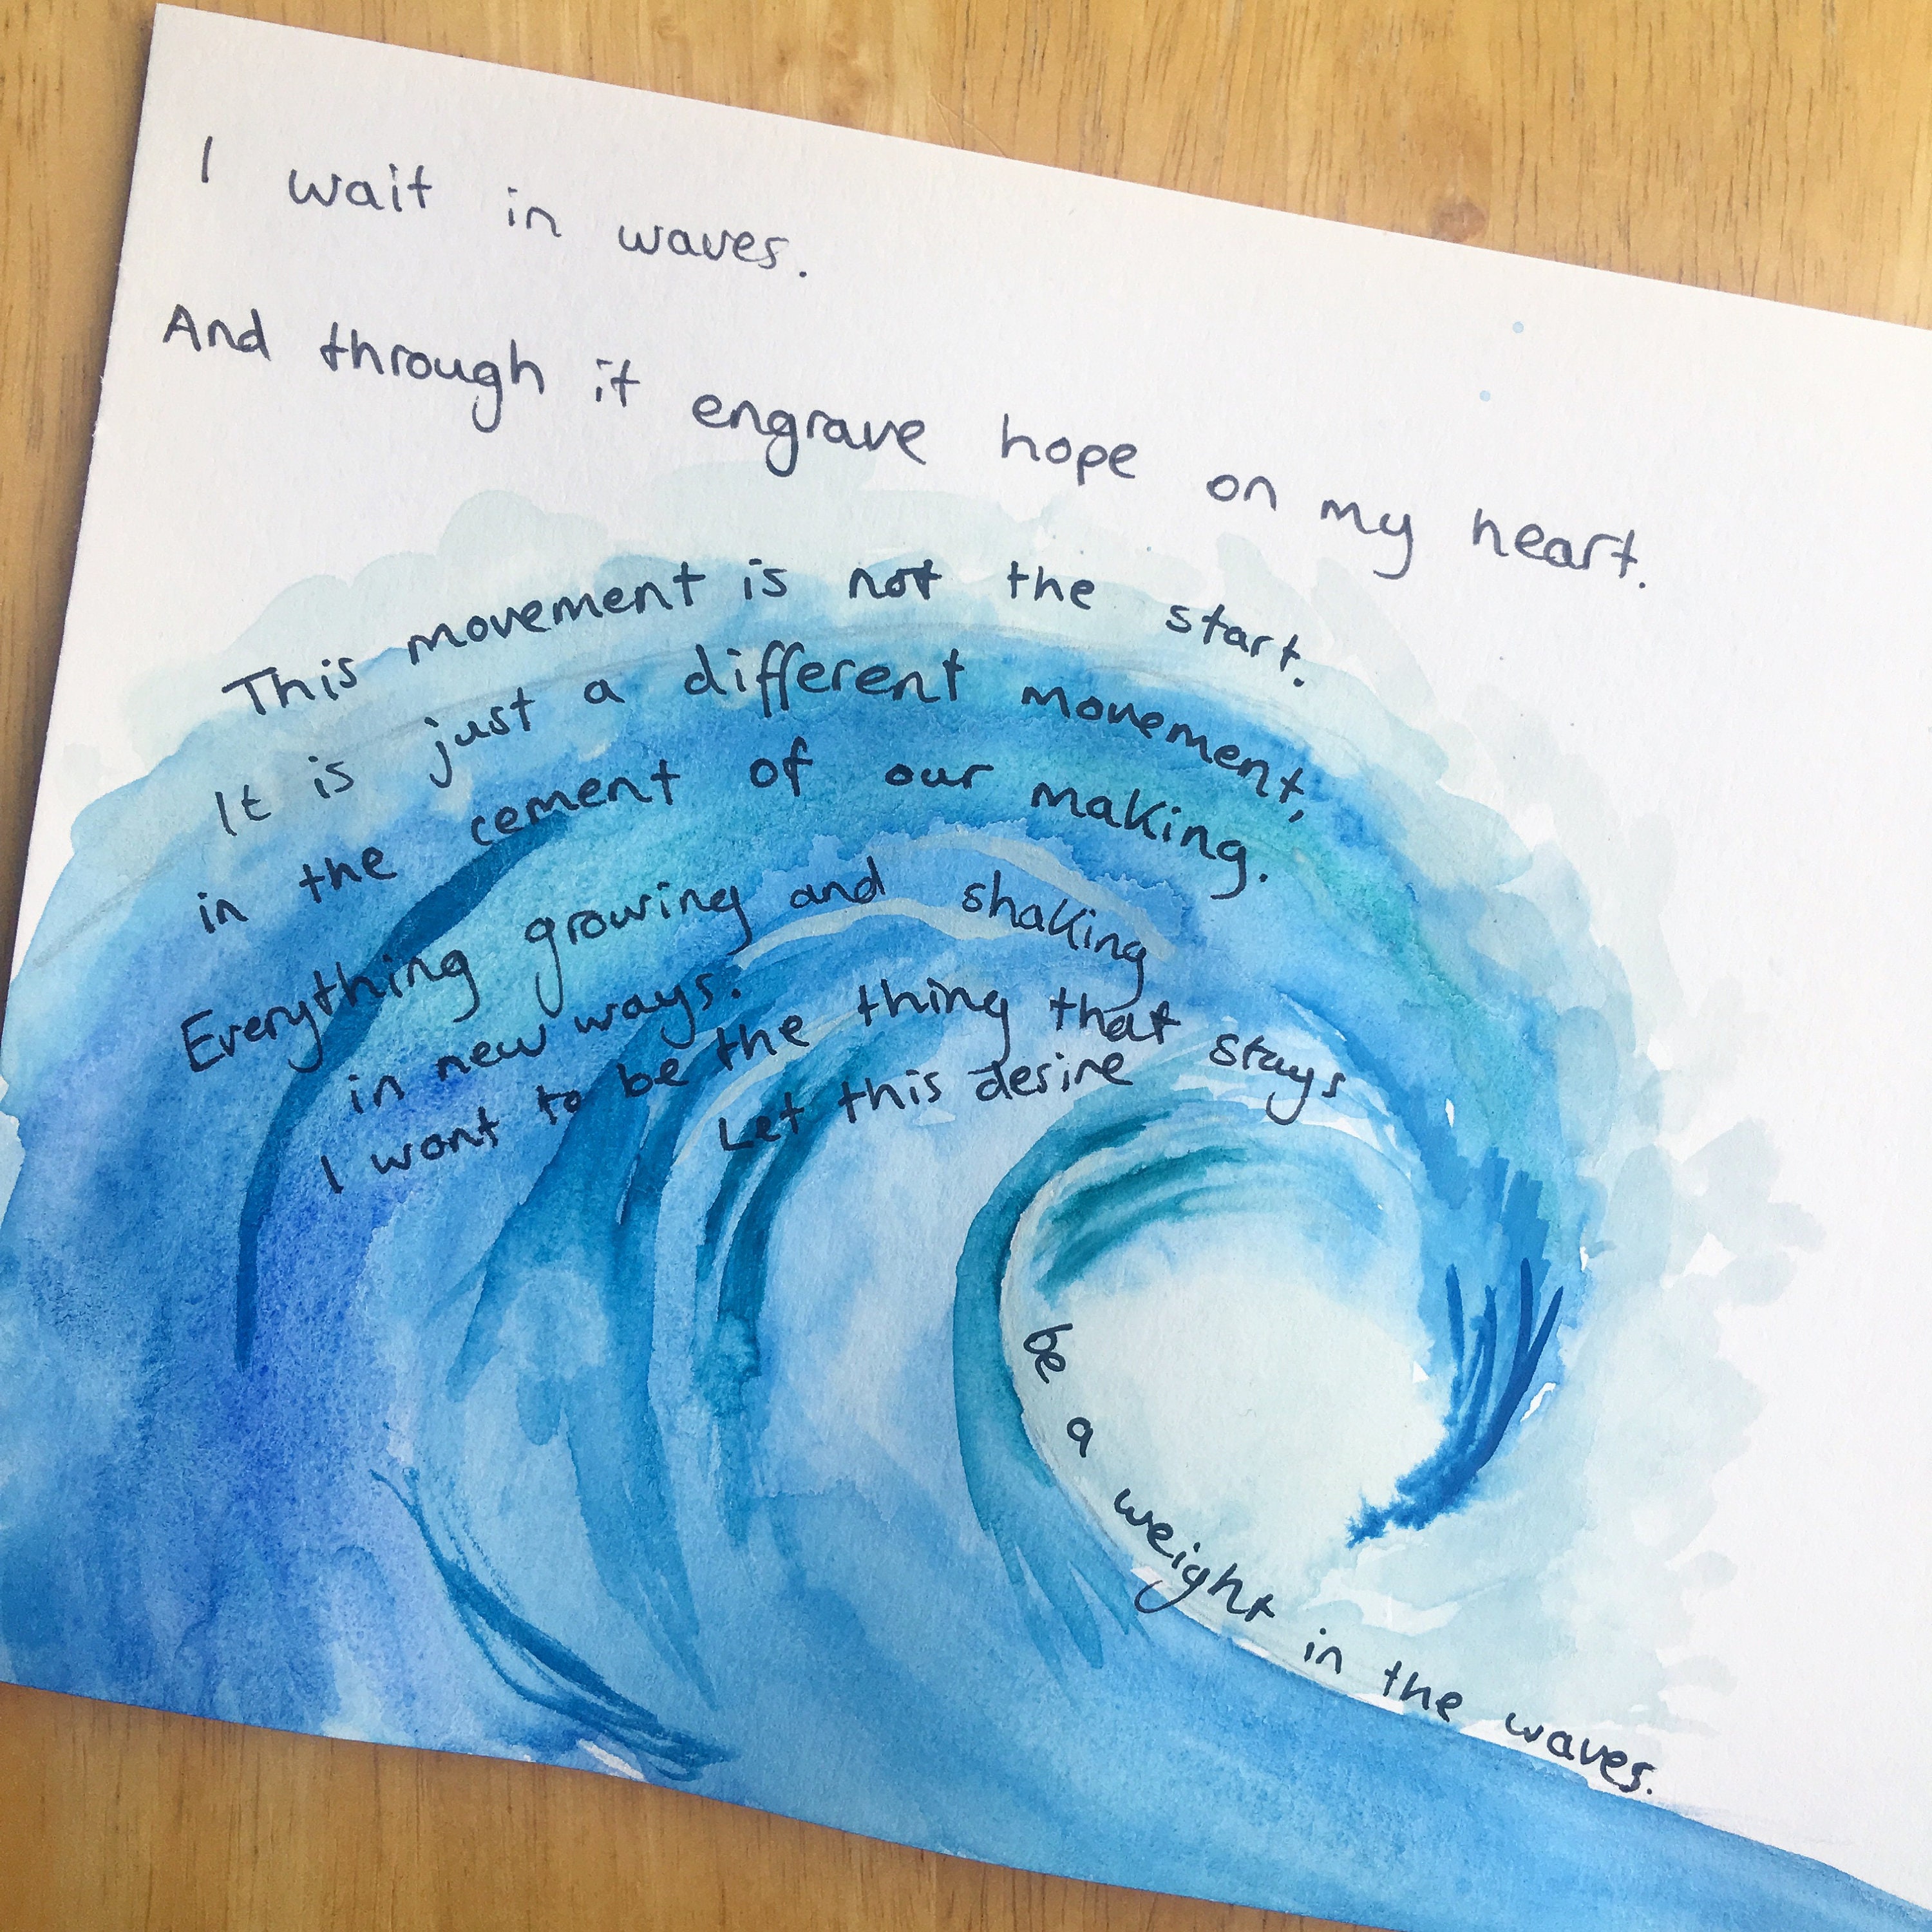 I wait in waves.
And through it engrave hope on my heart.
This movement is not the start.
It is just a different movement,
in the cement of our making.
Everything growing and shaking
in new ways.
I want to be the thing that stays
Let this desire
be a weight in the waves.